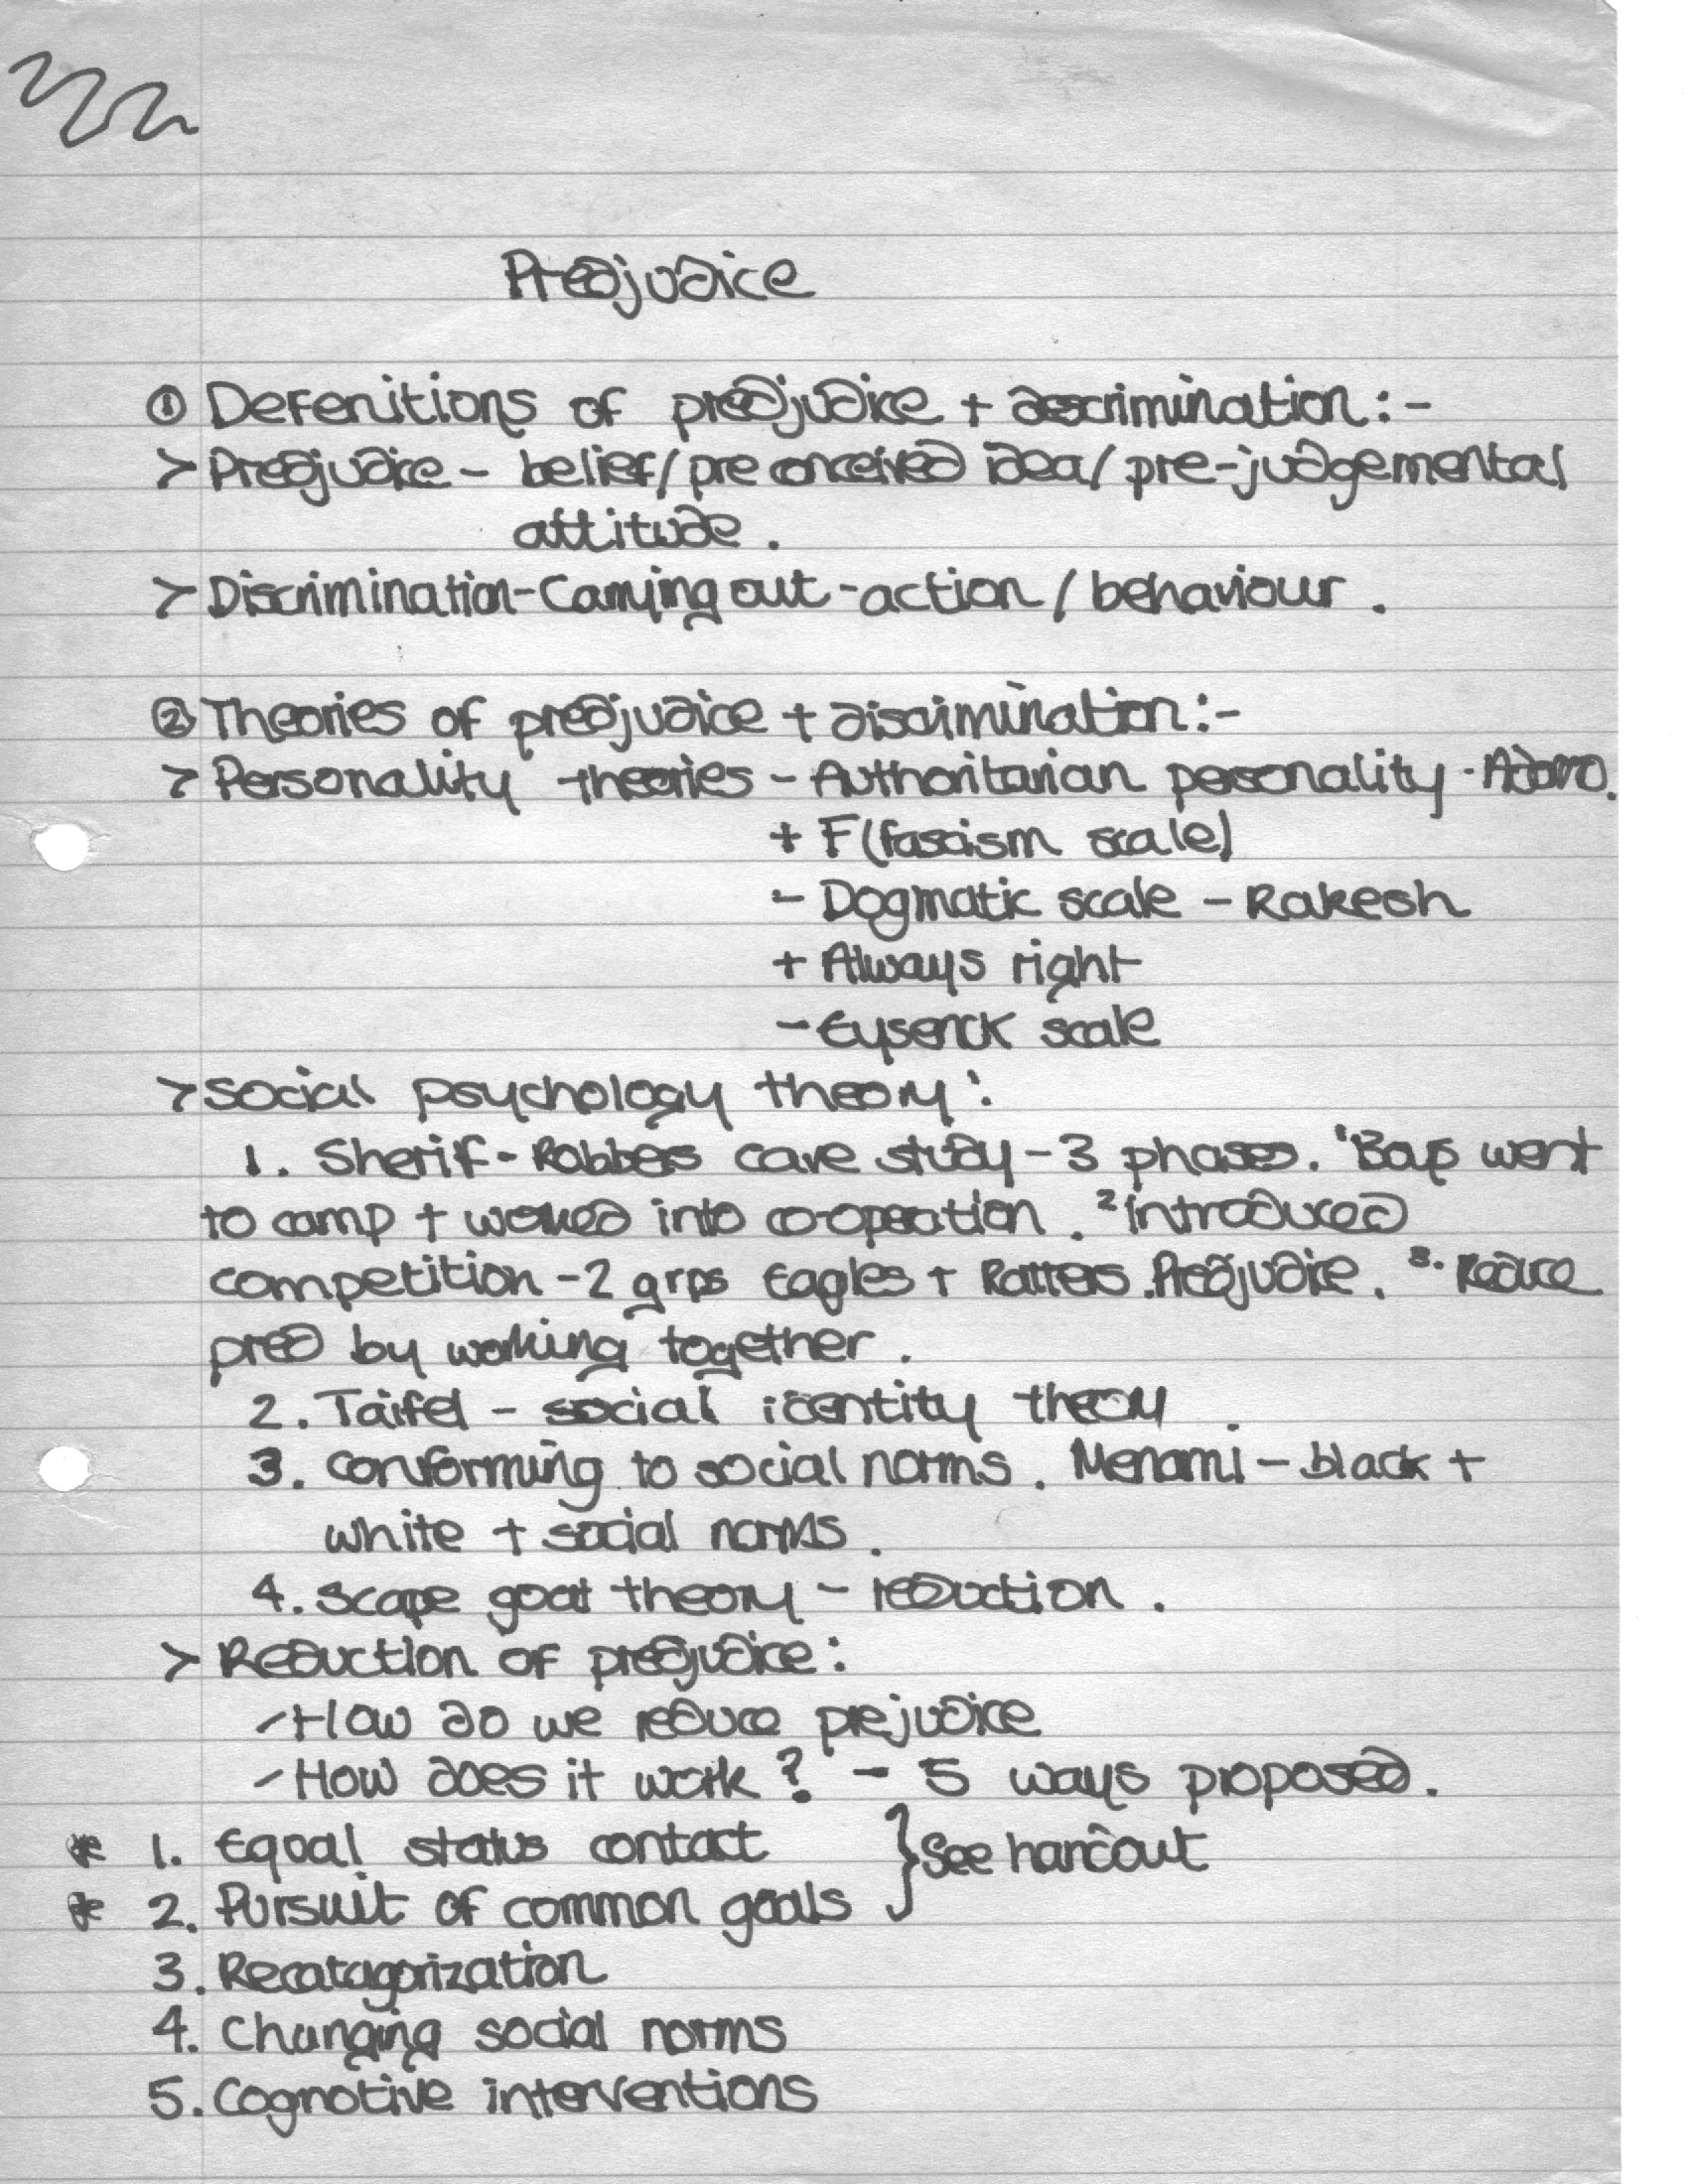 Predjudice
① Defenitions of predjudice + descrimination:-
> Predjudice - belief/pre conceived idea/ pre-judgemental
attitude.
> Discrimination-Carrying out -action / behaviour.
② Theories of predjudice + discrimination:-
> Personality theories - Authoritarian personality - Adorno.
+ F(fascism scale)
- Dogmatic scale - Rakesh
+ Always right
- Eysenck scale
> Social psychology theory:
1. Sherif - Robbers cave study - 3 phases. ¹Boys went
to camp + worked into co-operation. ²introduced
competition - 2 grps Eagles + Ratters. Predjudice. ³. Reduce
pred by working together.
2. Taifel - social identity theory.
3. conforming to social norms. Menami - black +
white + social norms.
4. Scape goat theory - reduction.
> Reduction of predjudice:
- How do we reduce prejudice
- How does it work? - 5 ways proposed.
* 1. Equal status contact } See handout
* 2. Pursuit of common goals
3. Recatagorization
4. Changing social norms
5. Cognotive interventions